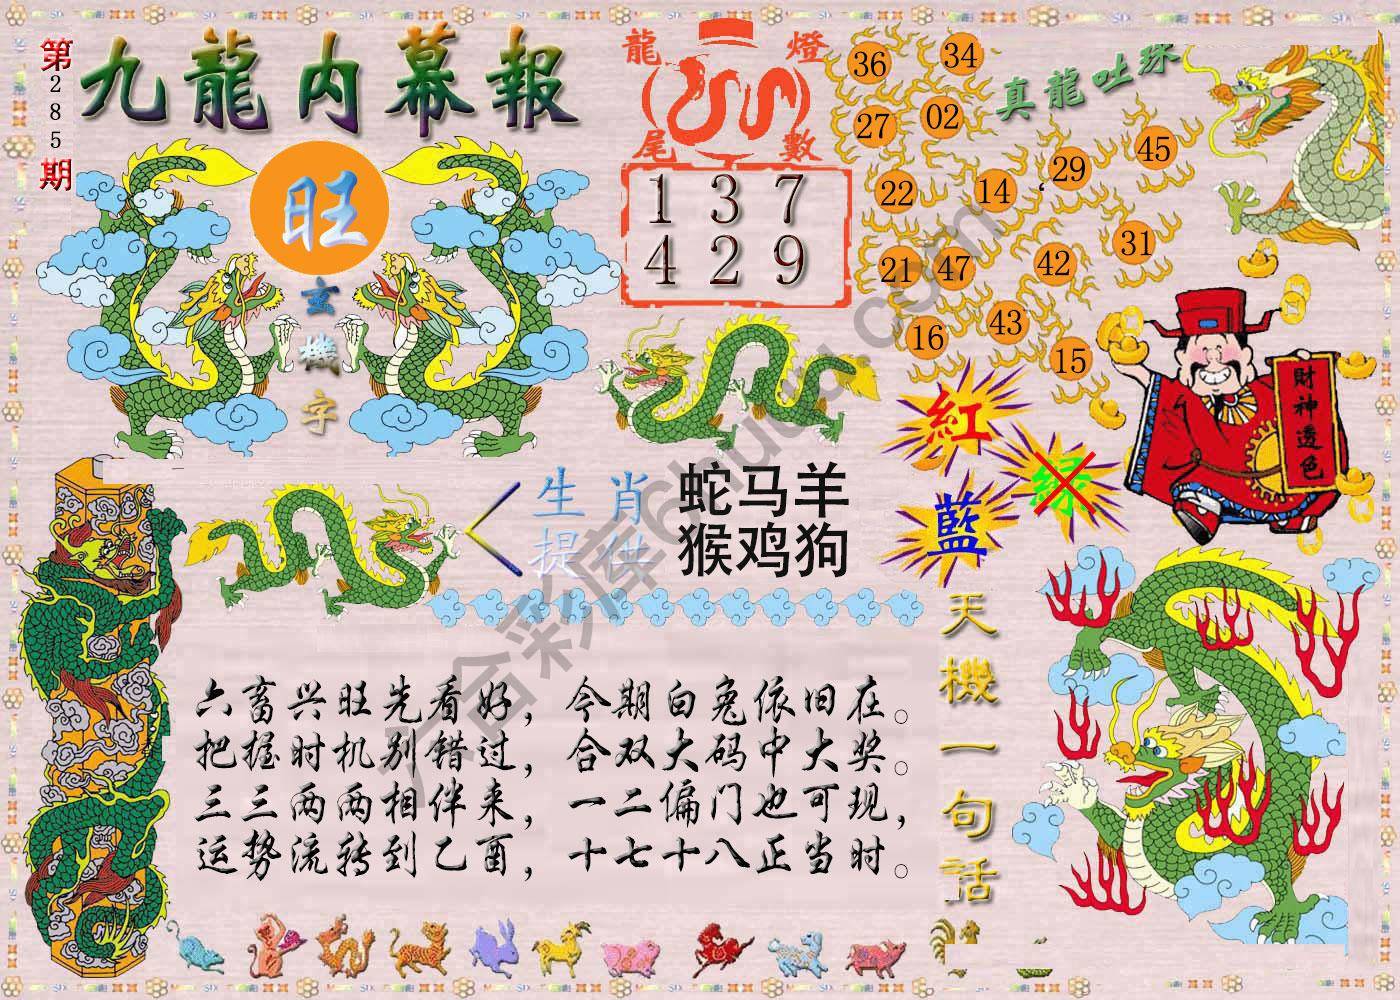 第285期
九龍内幕報
旺
玄機字
龍燈
尾數
1 3 7
4 2 9
真龍吐珠
36 34
27 02
22 14 29 45
21 47 42 31
16 43 15
紅
藍
绿
財神透色
生肖
提供
蛇马羊
猴鸡狗
天機一句话
六畜兴旺先看好，今期白兔依旧在。
把握时机别错过，合双大码中大奖。
三三两两相伴来，一二偏门也可现，
运势流转到乙酉，十七十八正当时。